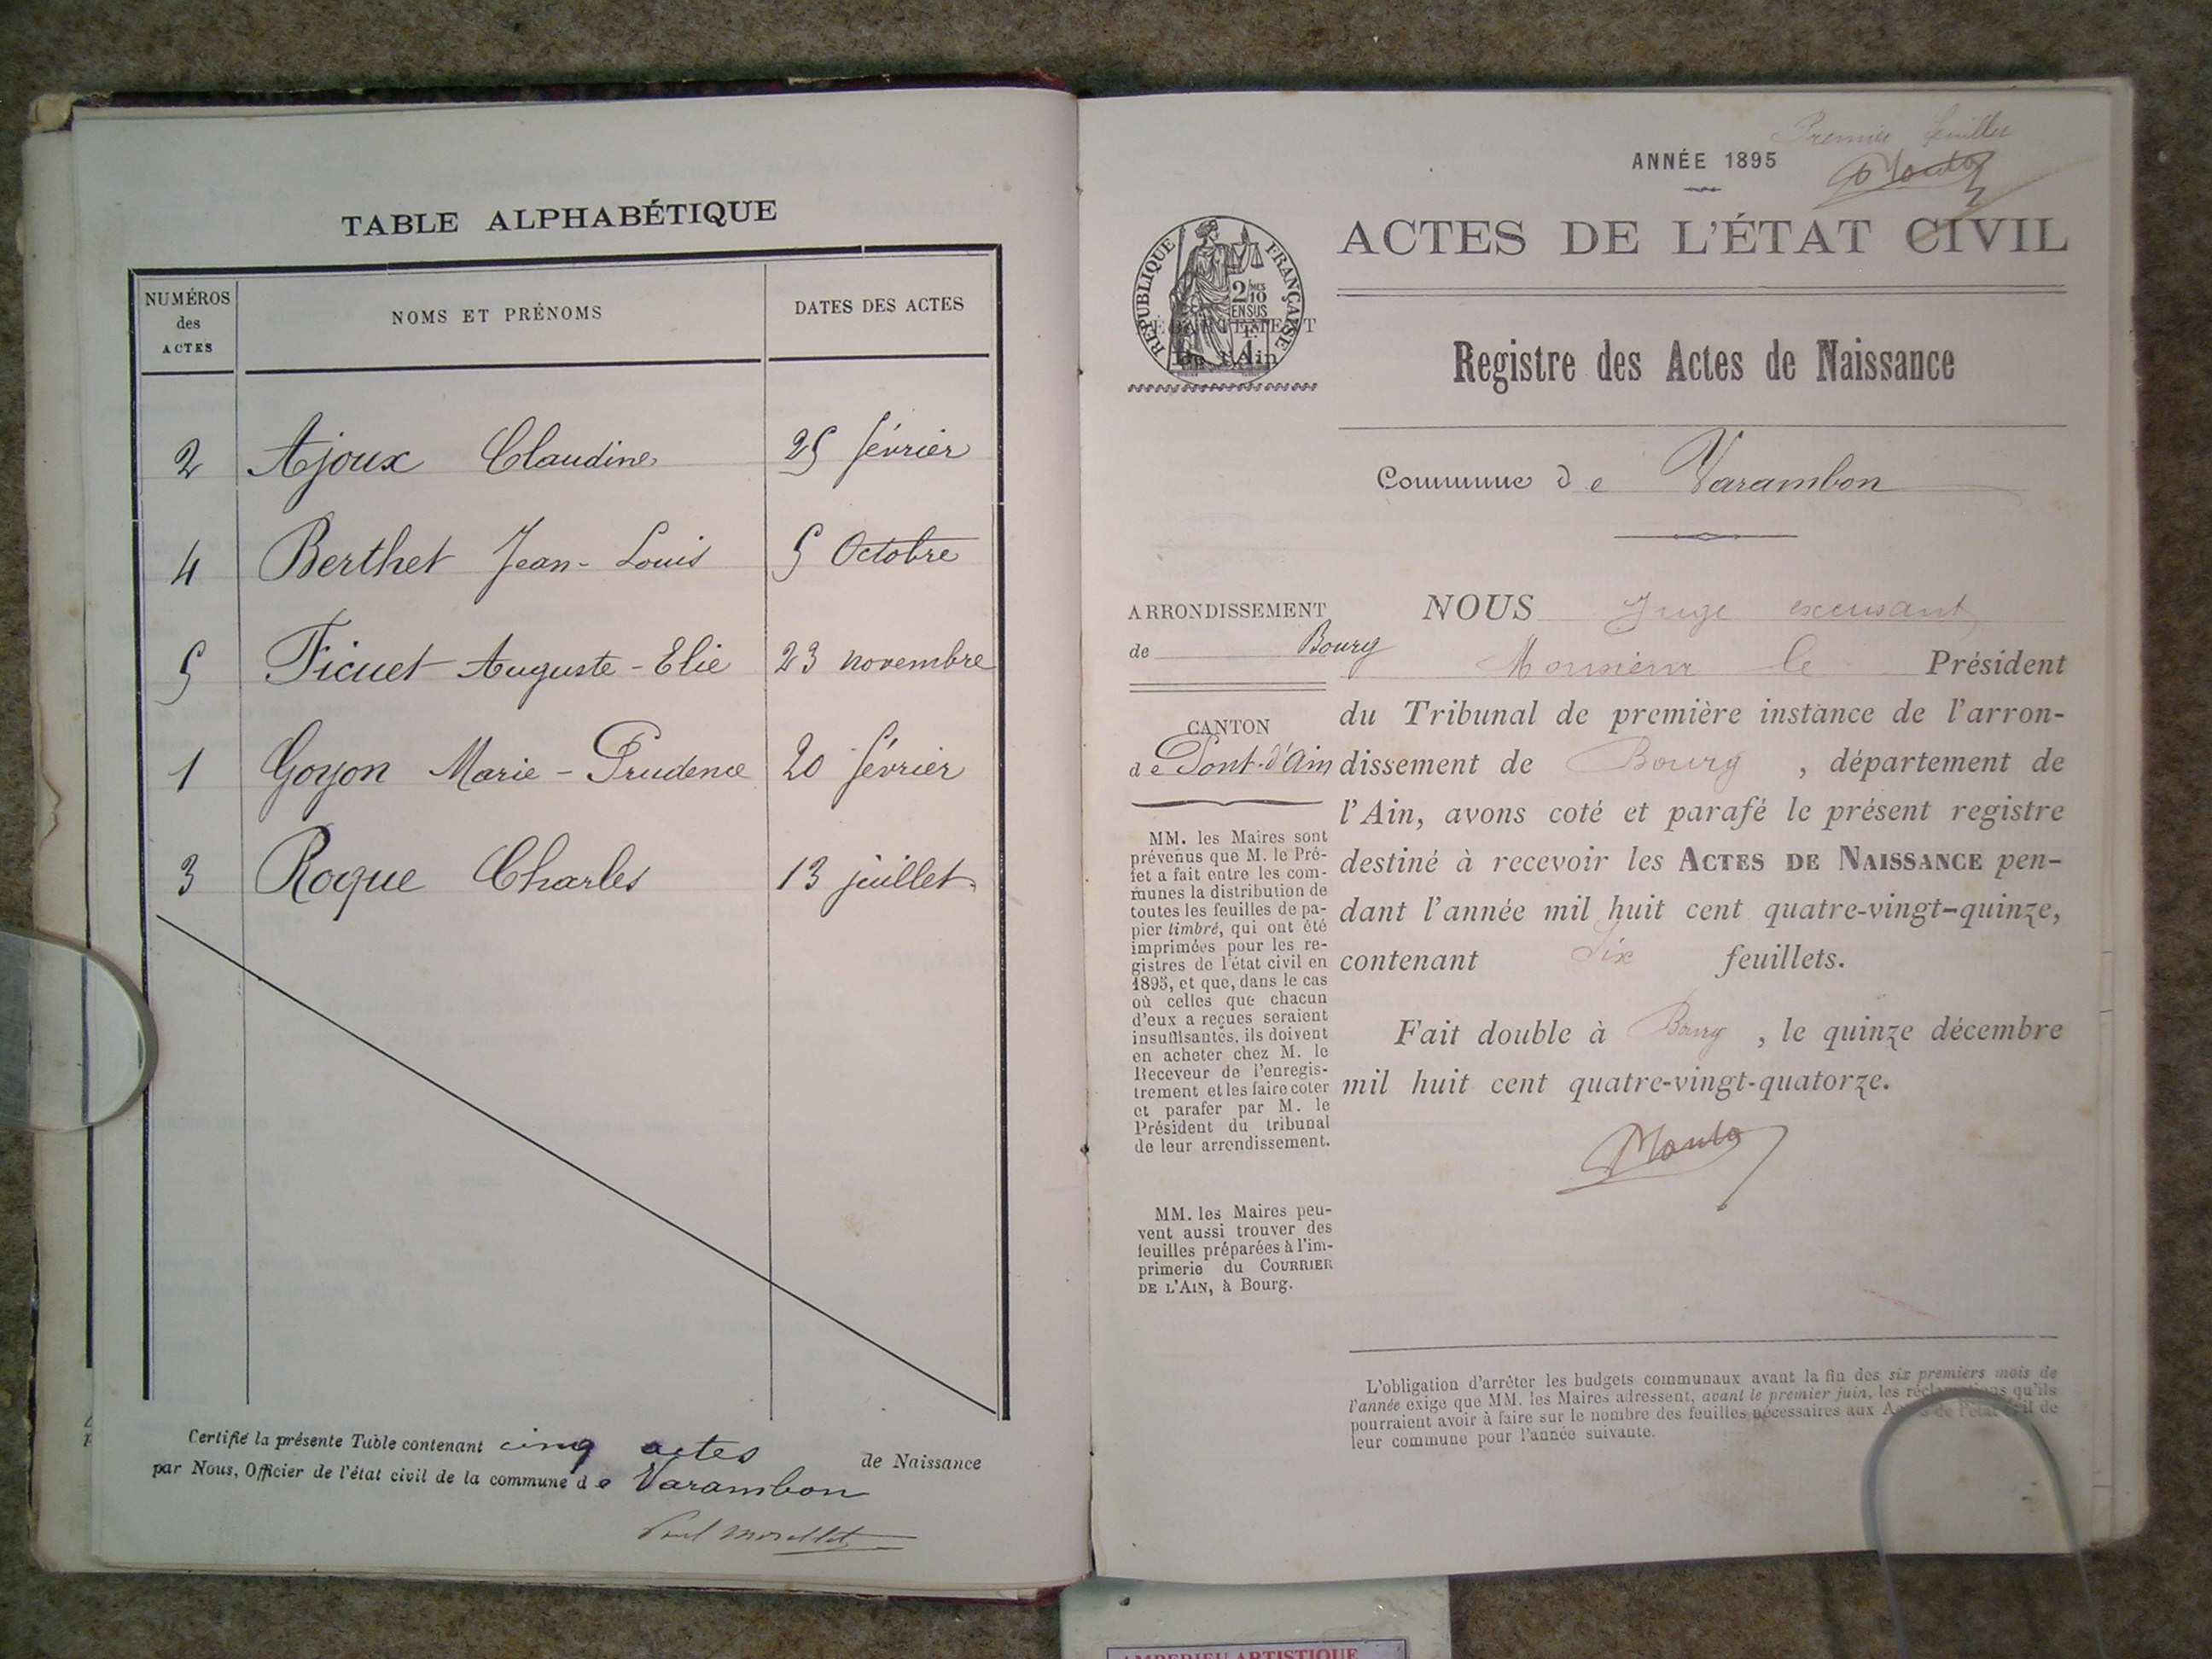 TABLE ALPHABÉTIQUE
NUMÉROS des ACTES
NOMS ET PRÉNOMS
DATES DES ACTES
2 Ajoux Claudine 25 février
4 Berthet Jean-Louis 5 Octobre
5 Ficuet Auguste-Elie 23 novembre
1 Goyon Marie-Prudence 20 février
3 Roque Charles 13 juillet
Certifié la présente Table contenant cinq actes de Naissance
par Nous, Officier de l'état civil de la commune de Varambon
Paul Morellet
Premier feuillet
ANNÉE 1895
ACTES DE L'ÉTAT CIVIL
RÉPUBLIQUE FRANÇAISE
2/10 MES
EN SUS
DÉPARTEMENT
De l'Ain
Registre des Actes de Naissance
Commune de Varambon
ARRONDISSEMENT
de Bourg
CANTON
de Pont-d'Ain
MM. les Maires sont
prévenus que M. le Pré-
fet a fait entre les com-
munes la distribution de
toutes les feuilles de pa-
pier timbré, qui ont été
imprimées pour les re-
gistres de l'état civil en
1895, et que, dans le cas
où celles que chacun
d'eux a reçues seraient
insuffisantes, ils doivent
en acheter chez M. le
Receveur de l'enregis-
trement et les faire coter
et parafer par M. le
Président du tribunal
de leur arrondissement.
MM. les Maires peu-
vent aussi trouver des
feuilles préparées à l'im-
primerie du COURRIER
DE L'AIN, à Bourg.
NOUS Juge excusant
Monsieur le Président
du Tribunal de première instance de l'arron-
dissement de Bourg, département de
l'Ain, avons coté et parafé le présent registre
destiné à recevoir les ACTES DE NAISSANCE pen-
dant l'année mil huit cent quatre-vingt-quinze,
contenant Six feuillets.
Fait double à Bourg, le quinze décembre
mil huit cent quatre-vingt-quatorze.
L'obligation d'arrêter les budgets communaux avant la fin des six premiers mois de
l'année exige que MM. les Maires adressent, avant le premier juin, les réclamations qu'ils
pourraient avoir à faire sur le nombre des feuilles nécessaires aux Actes de l'état civil de
leur commune pour l'année suivante.
AMBERIEU ARTISTIQUE